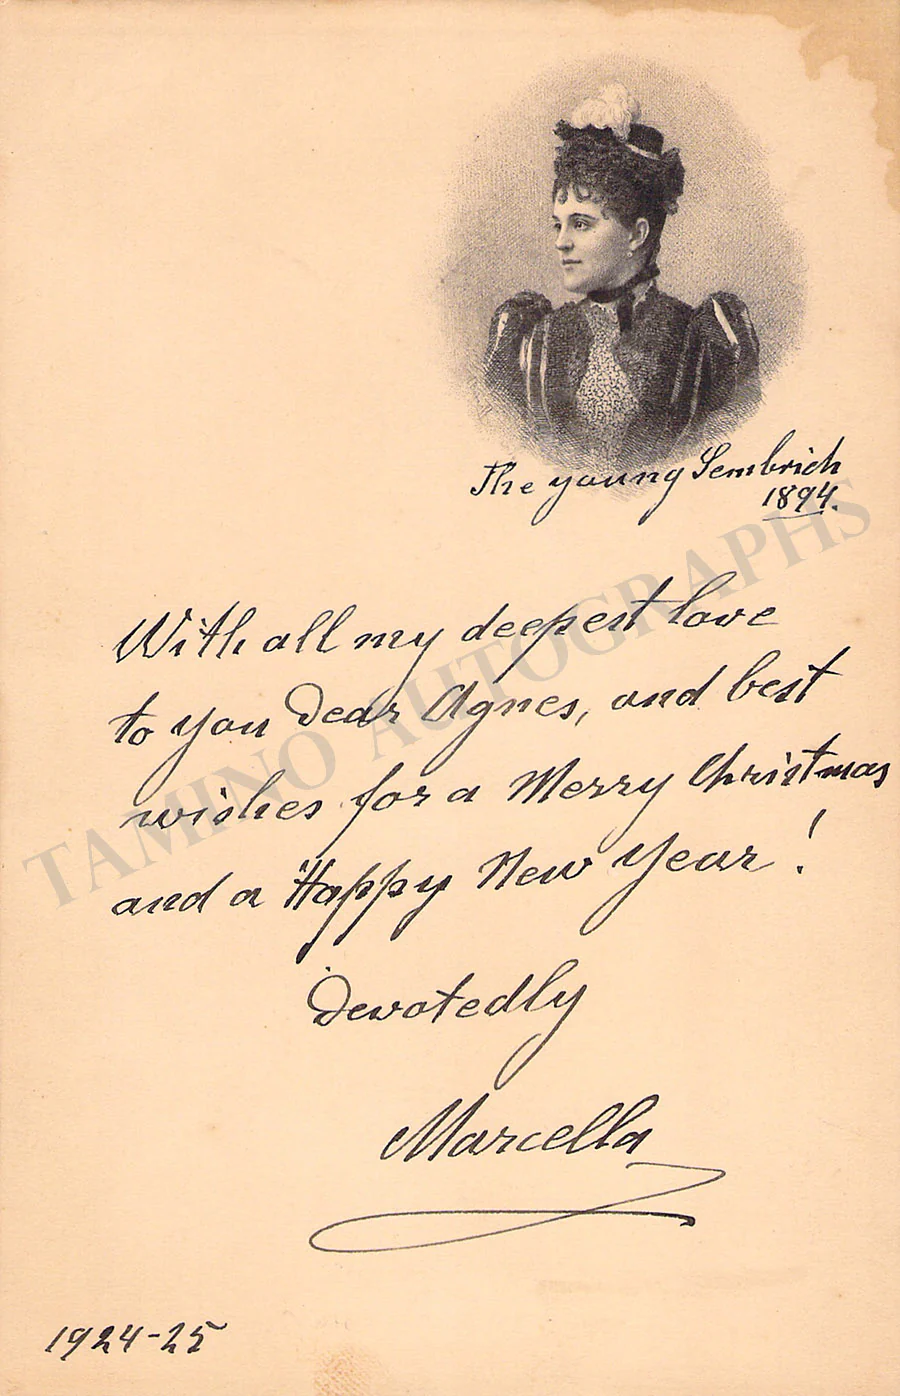 The young Sembrich
1894.
With all my deepest love
to you Dear Agnes, and best
wishes for a Merry Christmas
and a Happy New Year!
Devotedly
Marcella
1924-25
TAMINO AUTOGRAPHS